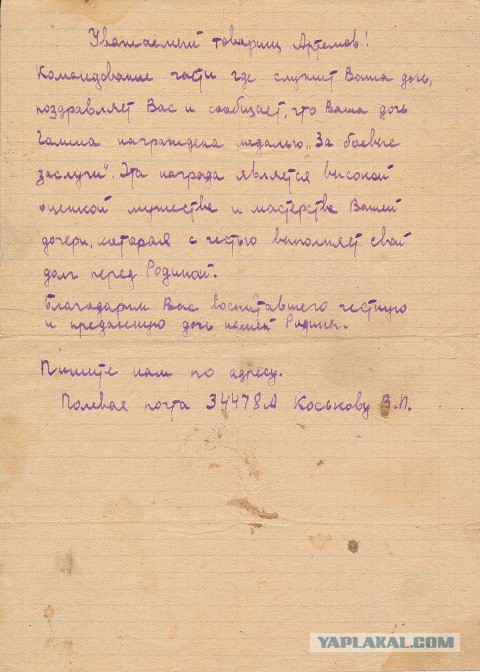 Уважаемый товарищ Артемов!
Командование части где служит Ваша дочь,
поздравляет Вас и сообщает, что Ваша дочь
Галина награждена медалью „За боевые
заслуги". Эта награда является высокой
оценкой мужества и мастерства Вашей
дочери, которая с честью выполняет свой
долг перед Родиной.
Благодарим Вас воспитавшего честную
и преданную дочь нашей Родины.
Пишите нам по адресу.
Полевая почта 34478А Коськову В.П.
YAPLAKAL.COM